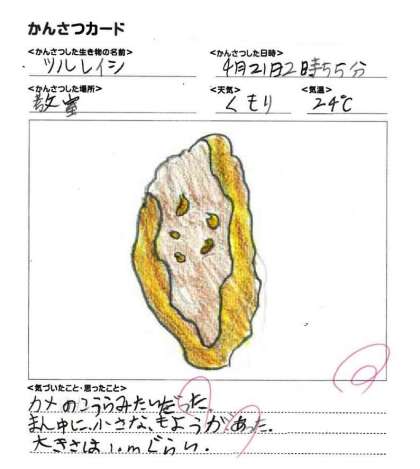 かんさつカード
<かんさつした生き物の名前>
ツルレイシ
<かんさつした日時>
4月21日2時55分
<かんさつした場所>
教室
<天気>
くもり
<気温>
24℃
<気づいたこと・思ったこと>
カメのこうらみたいだった。
まん中に、小さな、もようがあった。
大きさは1.mぐらい.